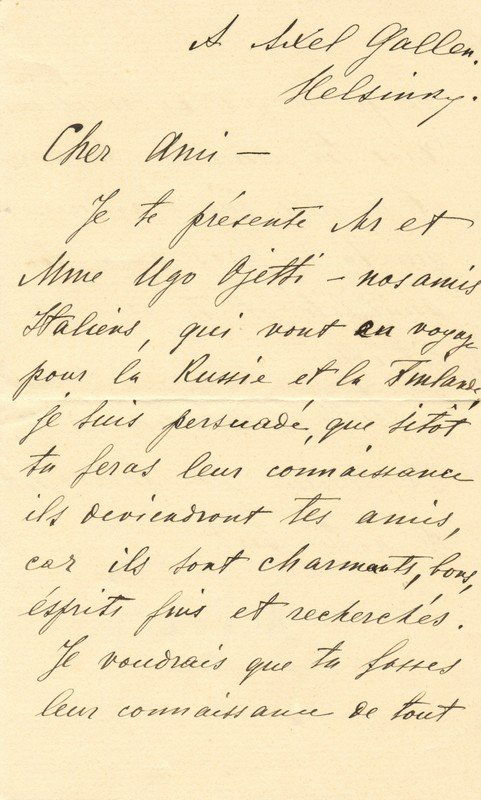 A Axel Gallen.
Helsinky.
Cher Ami —
Je te présente Mr et
Mme Ugo Ojetti — nos amis
Italiens, qui vont en voyage
pour la Russie et la Finlande,
je suis persuadé, que sitôt
tu feras leur connaissance
ils deviendront tes amis,
car ils sont charmants, bons,
ésprits fins et recherchés.
Je voudrais que tu fasses
leur connaissance de tout